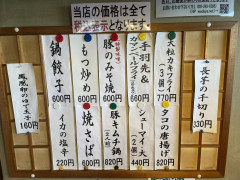 当店の価格は全て
税込表示となります。
大粒カキフライ
(3個)
770円
手羽先&
カマンベールフライ
660円
豚のみそ焼
600円
もつ炒め
600円
鍋餃子
600円
長芋の千切り
330円
タコの唐揚げ
820円
シューマイ
(2個)
440円
豚キムチ鍋
820円
焼さば
500円
イカの塩辛
220円
160円